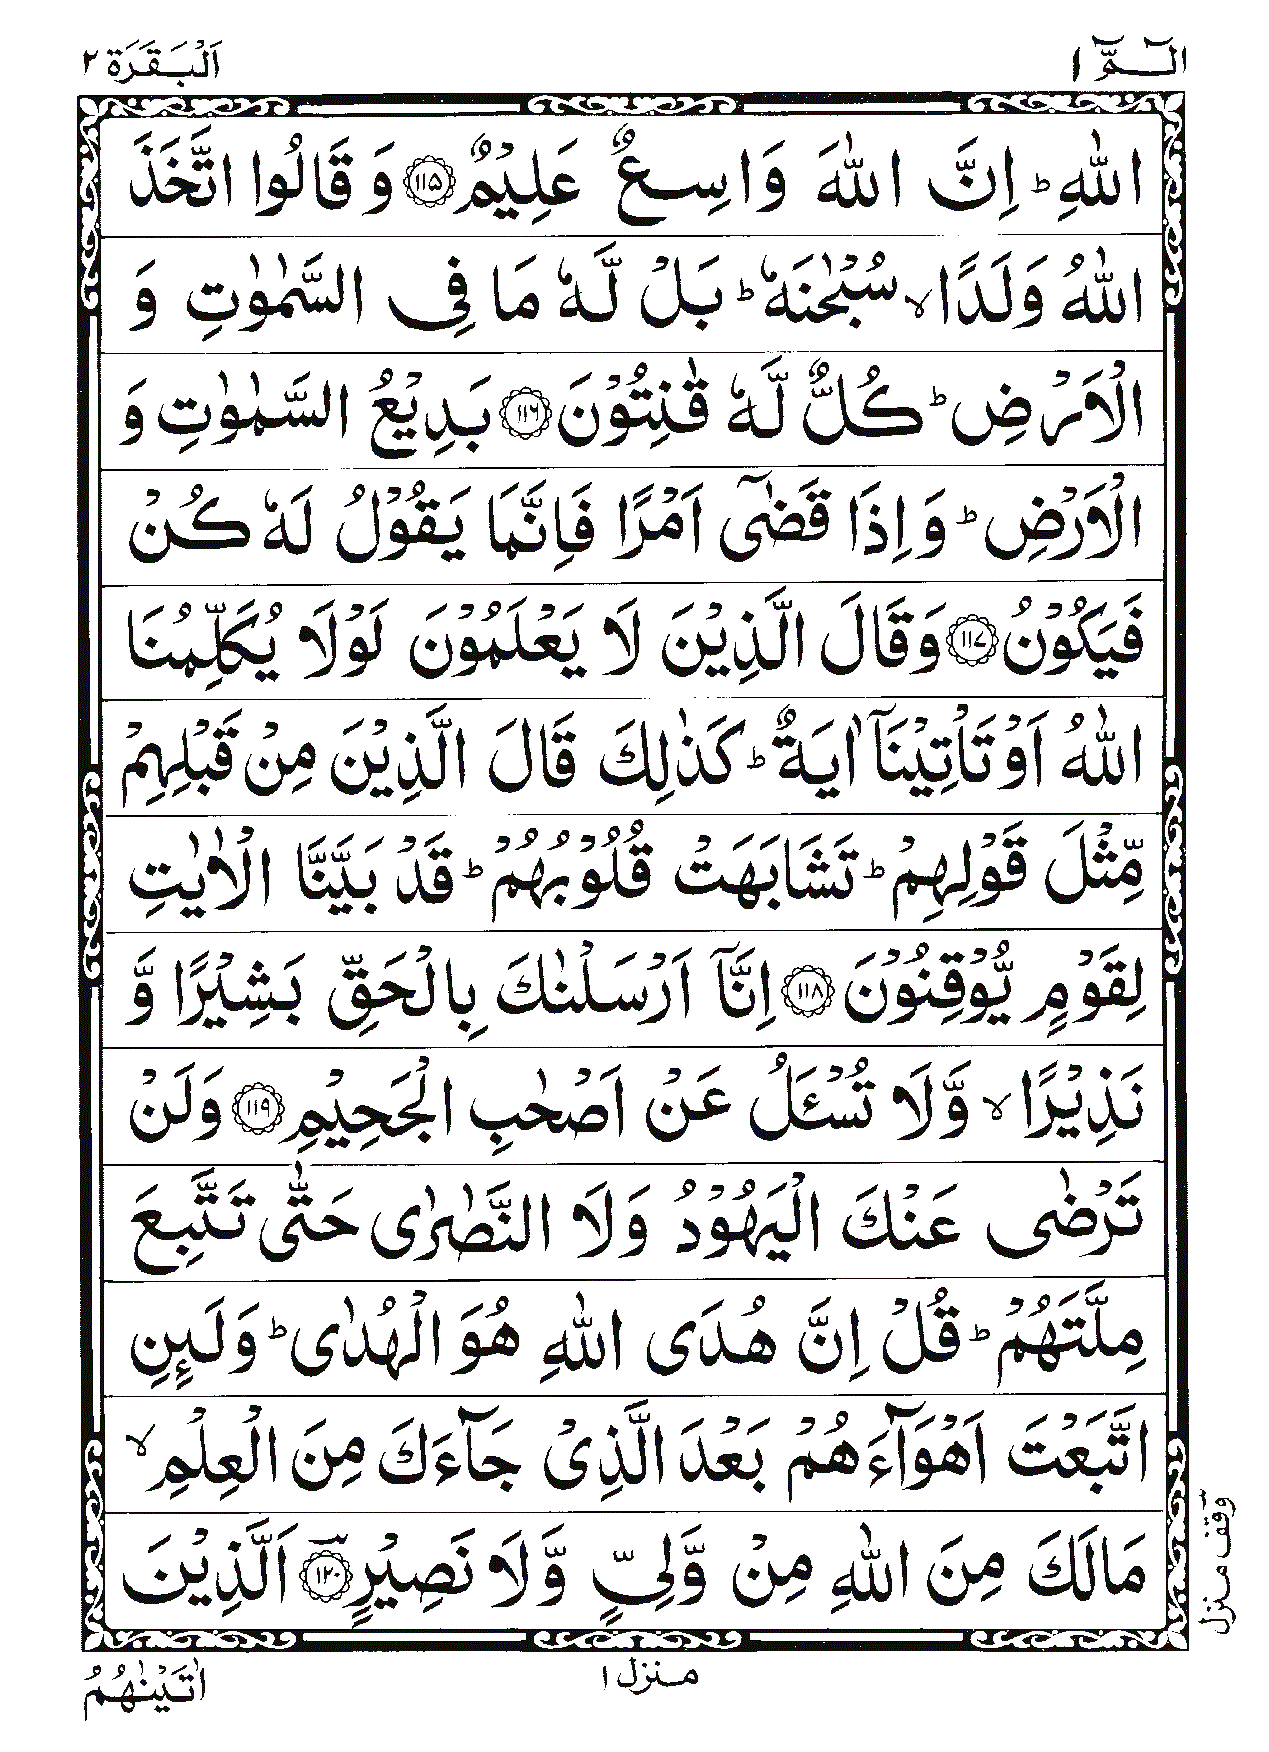 الٓـمّٓ ١
اَلْبَقَرَة ٢
اللّٰهِ ؕ اِنَّ اللّٰهَ وَاسِعٌ عَلِيْمٌ ﴿۱۱۵﴾ وَ قَالُوا اتَّخَذَ
اللّٰهُ وَلَدًا ۙ سُبْحٰنَهٗ ؕ بَلْ لَّهٗ مَا فِى السَّمٰوٰتِ وَ
الْاَرْضِ ؕ كُلٌّ لَّهٗ قٰنِتُوْنَ ﴿۱۱۶﴾ بَدِيْعُ السَّمٰوٰتِ وَ
الْاَرْضِ ؕ وَ اِذَا قَضٰٓى اَمْرًا فَاِنَّمَا يَقُوْلُ لَهٗ كُنْ
فَيَكُوْنُ ﴿۱۱۷﴾ وَقَالَ الَّذِيْنَ لَا يَعْلَمُوْنَ لَوْلَا يُكَلِّمُنَا
اللّٰهُ اَوْ تَاْتِيْنَاۤ اٰيَةٌ ؕ كَذٰلِكَ قَالَ الَّذِيْنَ مِنْ قَبْلِهِمْ
مِّثْلَ قَوْلِهِمْ ؕ تَشَابَهَتْ قُلُوْبُهُمْ ؕ قَدْ بَيَّنَّا الْاٰيٰتِ
لِقَوْمٍ يُّوْقِنُوْنَ ﴿۱۱۸﴾ اِنَّاۤ اَرْسَلْنٰكَ بِالْحَقِّ بَشِيْرًا وَّ
نَذِيْرًا ۙ وَّلَا تُسْـَٔلُ عَنْ اَصْحٰبِ الْجَحِيْمِ ﴿۱۱۹﴾ وَلَنْ
تَرْضٰى عَنْكَ الْيَهُوْدُ وَلَا النَّصٰرٰى حَتّٰى تَتَّبِعَ
مِلَّتَهُمْ ؕ قُلْ اِنَّ هُدَى اللّٰهِ هُوَ الْهُدٰى ؕ وَلَئِنِ
اتَّبَعْتَ اَهْوَآءَهُمْ بَعْدَ الَّذِىْ جَآءَكَ مِنَ الْعِلْمِ ۙ
مَالَكَ مِنَ اللّٰهِ مِنْ وَّلِىٍّ وَّلَا نَصِيْرٍ ﴿۱۲۰﴾ اَلَّذِيْنَ
وقف منزل
منزل ١
اٰتَيْنٰهُمُ